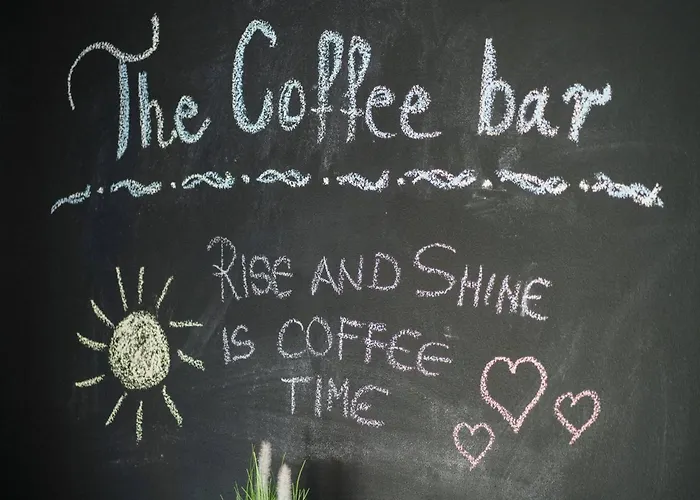 The Coffee bar
RISE AND SHINE
IS COFFEE
TIME